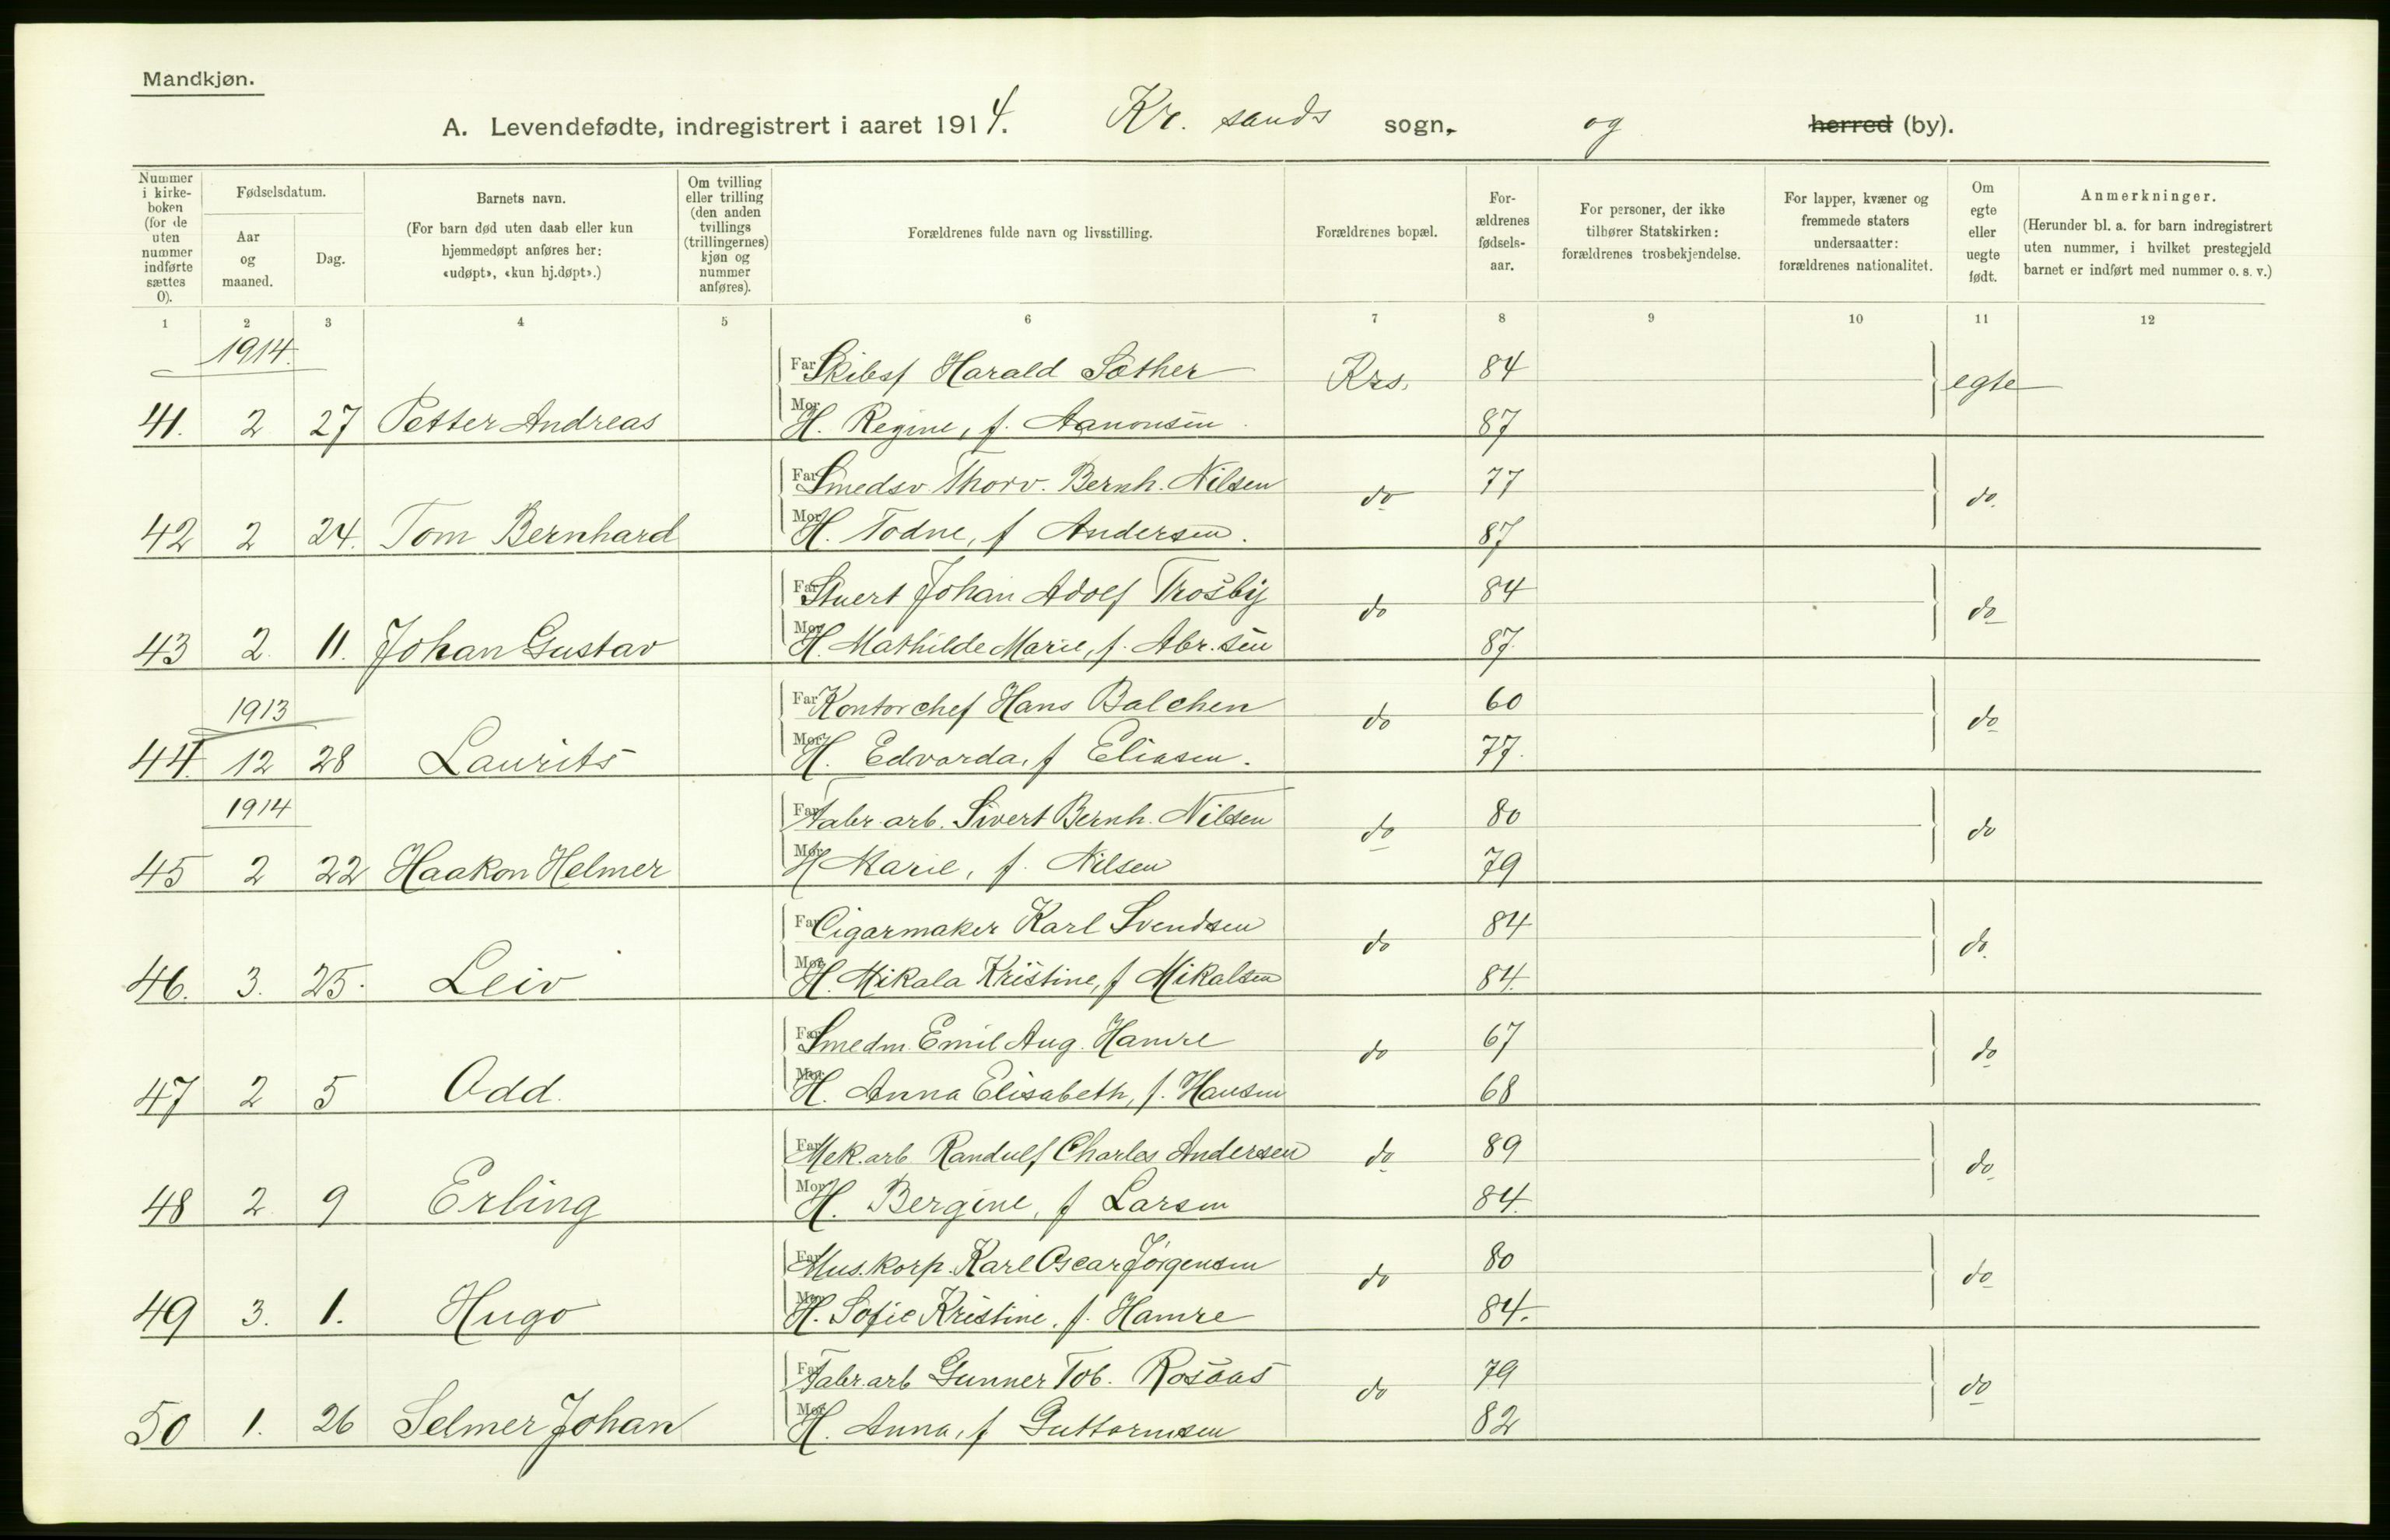 Mandkjøn.
A. Levendefødte, indregistrert i aaret 1914. Kr. sands sogn. og herred (by).
Nummer i kirke- boken (for de uten nummer indførte sættes 0).
Fødselsdatum.
Aar og maaned.
Dag.
Barnets navn.
(For barn død uten daab eller kun hjemmedøpt anføres her: «udøpt», «kun hj.døpt».)
Om tvilling eller trilling (den anden tvillings (trillingernes) kjøn og nummer anføres).
Forældrenes fulde navn og livsstilling.
Forældrenes bopæl.
For- ældrenes fødsels- aar.
For personer, der ikke tilhører Statskirken: forældrenes trosbekjendelse.
For lapper, kvæner og fremmede staters undersaatter: forældrenes nationalitet.
Om egte eller uegte født.
Anmerkninger.
(Herunder bl. a. for barn indregistrert uten nummer, i hvilket prestegjeld barnet er indført med nummer o. s. v.)
1 2 3 4 5 6 7 8 9 10 11 12
1914.
Far Skibsf Harald Sæther Krs. 84 egte
41. 2 27 Petter Andreas Mor H. Regine, f. Aanonsen 87
Far Smedsv. Thorv. Bernh. Nilsen do 77 do.
42 2 24. Tom Bernhard Mor H. Todne, f Andersen. 87
Far Stuert Johan Adolf Trosby do 84 do
43 2. 11. Johan Gustav Mor H. Mathilde Marie, f. Abr.sen 87.
1913
Far Kontorchef Hans Balchen do 60 do
44. 12 28 Laurits Mor H. Edvarda, f Eliasen. 77.
1914
Far Fabr. arb. Sivert Bernh. Nilsen do 80 do
45 2 22 Haakon Helmer Mor H Marie, f. Nilsen 79
Far Cigarmaker Karl Svendsen do 84 do.
46. 3. 25. Leiv Mor H. Mikala Kristine, f Mikalsen 84.
Far Smedm. Emil Aug. Hamre do 67 do
47 2 5 Odd. Mor H. Anna Elisabeth, f. Hansen 68
Far Mek. arb Randulf Charles Andersen do 89 do
48 2. 9 Erling Mor H. Bergine, f Larsen 84.
Far Mus. korp. Karl Oscar Jørgensen do 80 do
49 3. 1. Hugo Mor H. Sofie Kristine, f. Hamre 84.
Far Fabr. arb Gunner Tob. Rosaas do 79 do
50 1. 26 Selmer Johan Mor H. Anna, f Guttormsen 82